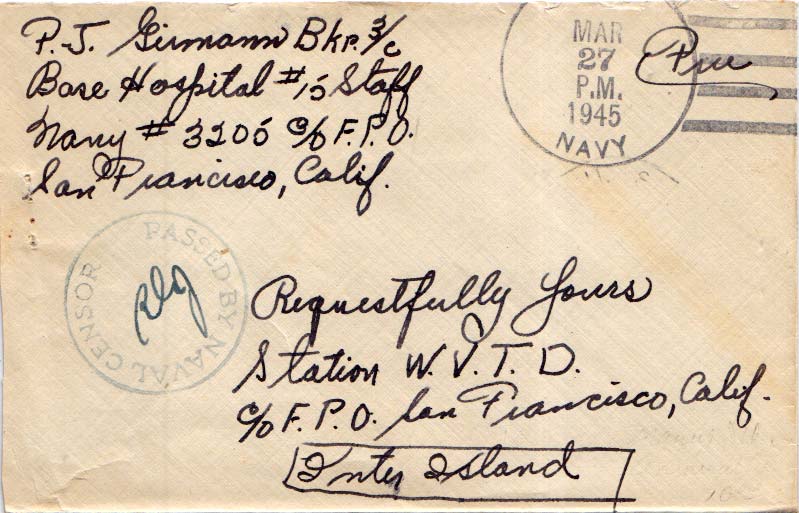 P.J. Girmann Bkr. 3/c
Base Hospital #15 Staff
Navy # 3205 c/o F.P.O.
San Francisco, Calif.
MAR
27
P.M.
1945
NAVY
PASSED BY NAVAL CENSOR
Requestfully Yours
Station W.V.T.D.
c/o F.P.O. San Francisco, Calif.
Inter Island